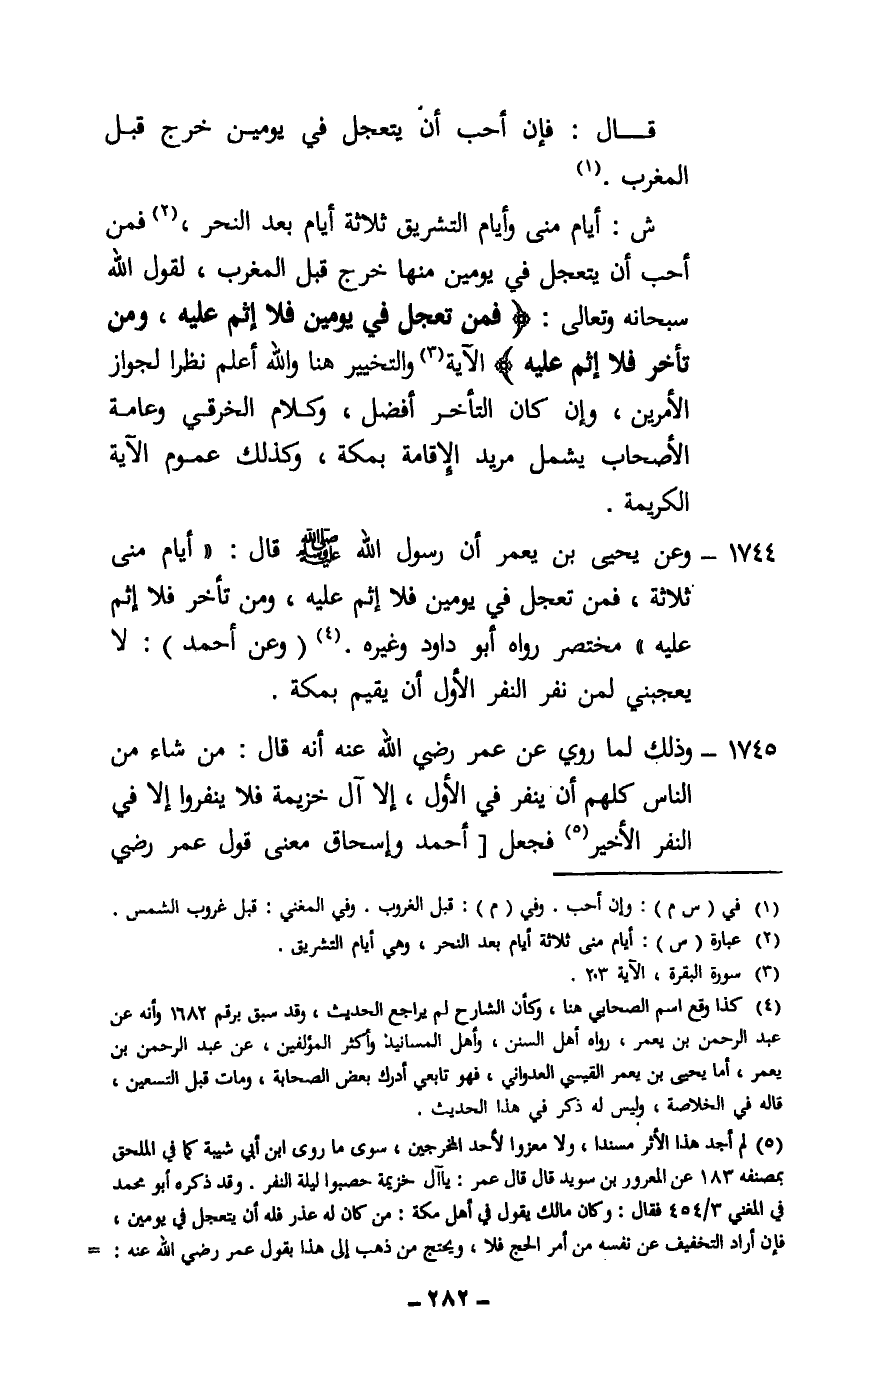 قـــال : فإن أحب أن يتعجل في يوميـن خرج قبـل
المغرب .(١)
ش : أيام منى وأيام التشريق ثلاثة أيام بعد النحر ،(٢) فمن
أحب أن يتعجل في يومين منها خرج قبل المغرب ، لقول الله
سبحانه وتعالى : ﴿ فمن تعجل في يومين فلا إثم عليه ، ومن
تأخر فلا إثم عليه ﴾ الآية(٣) والتخيير هنا والله أعلم نظرا لجواز
الأمرين ، وإن كان التأخـر أفضل ، وكـلام الخرقـي وعامـة
الأصحاب يشمل مريد الإقامة بمكة ، وكذلك عمـوم الآية
الكريمة .
١٧٤٤ ـ وعن يحيى بن يعمر أن رسول الله ﷺ قال : « أيام منى
ثلاثة ، فمن تعجل في يومين فلا إثم عليه ، ومن تأخر فلا إثم
عليه » مختصر رواه أبو داود وغيره .(٤) ( وعن أحمد ) : لا
يعجبني لمن نفر النفر الأول أن يقيم بمكة .
١٧٤٥ ـ وذلك لما روي عن عمر رضي الله عنه أنه قال : من شاء من
الناس كلهم أن ينفر في الأول ، إلا آل خزيمة فلا ينفروا إلا في
النفر الأخير(٥) فجعل [ أحمد وإسحاق معنى قول عمر رضي
(١) في ( س م ) : وإن أحب . وفي ( م ) : قبل الغروب . وفي المغني : قبل غروب الشمس .
(٢) عبارة ( س ) : أيام منى ثلاثة أيام بعد النحر ، وهي أيام التشريق .
(٣) سورة البقرة ، الآية ٢٠٣ .
(٤) كذا وقع اسم الصحابي هنا ، وكأن الشارح لم يراجع الحديث ، وقد سبق برقم ١٦٨٢ وأنه عن
عبد الرحمن بن يعمر ، رواه أهل السنن ، وأهل المسانيد وأكثر المؤلفين ، عن عبد الرحمن بن
يعمر ، أما يحيى بن يعمر القيسي العدواني ، فهو تابعي أدرك بعض الصحابة ، ومات قبل التسعين ،
قاله في الخلاصة ، وليس له ذكر في هذا الحديث .
(٥) لم أجد هذا الأثر مسندا ، ولا معزوا لأحد المخرجين ، سوى ما روى ابن أبي شيبة كما في الملحق
بمصنفه ١٨٣ عن المعرور بن سويد قال قال عمر : ياآل خزيمة حصبوا ليلة النفر . وقد ذكره أبو محمد
في المغني ٤٥٤/٣ فقال : وكان مالك يقول في أهل مكة : من كان له عذر فله أن يتعجل في يومين ،
فإن أراد التخفيف عن نفسه من أمر الحج فلا ، ويحتج من ذهب إلى هذا بقول عمر رضي الله عنه : =
ـ ٢٨٢ ـ